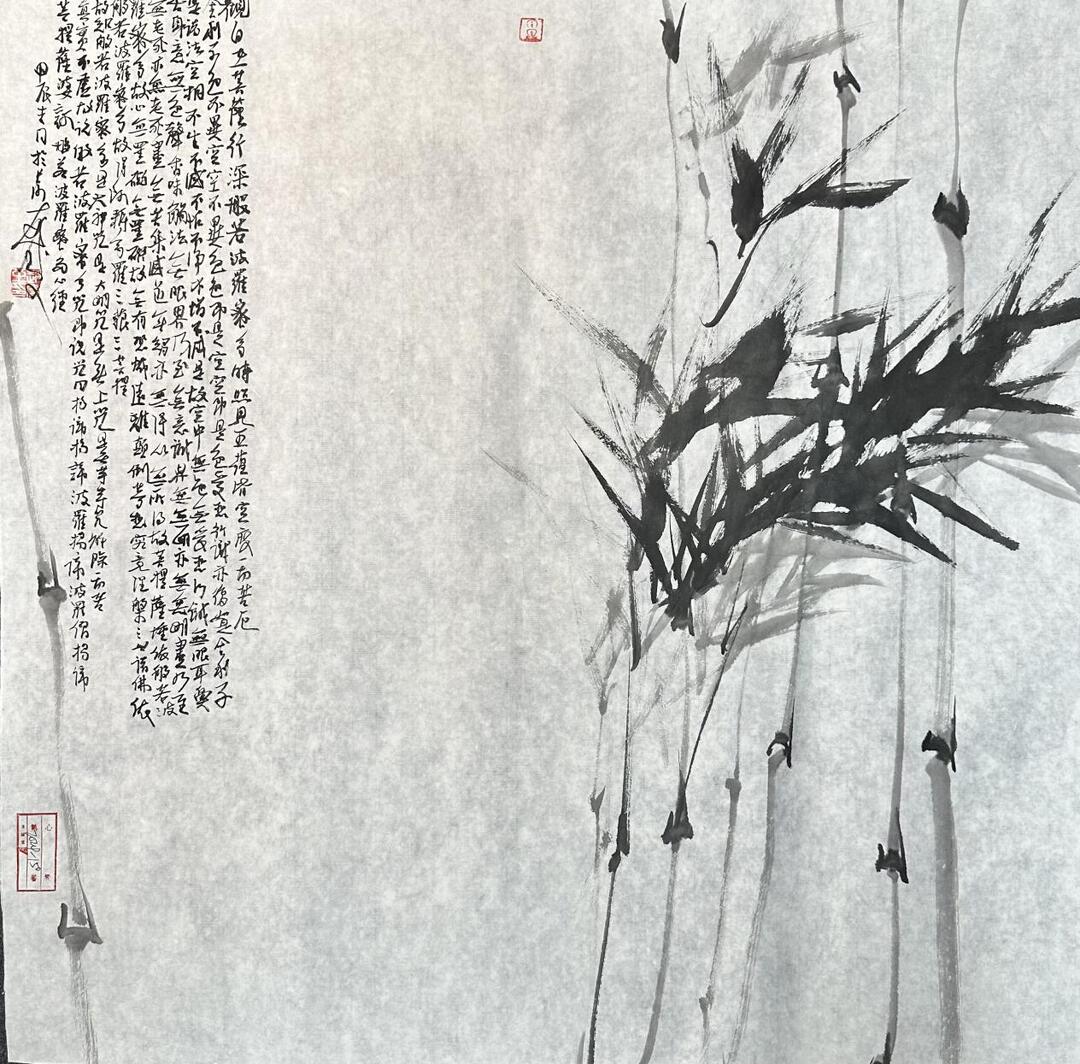 觀自在菩薩行深般若波羅蜜多時照見五蘊皆空度一切苦厄
舍利子色不異空空不異色色即是空空即是色受想行識亦復如是舍利子
是諸法空相不生不滅不垢不淨不增不減是故空中無色無受想行識無眼耳鼻
舌身意無色聲香味觸法無眼界乃至無意識界無無明亦無無明盡乃至
無老死亦無老死盡無苦集滅道無智亦無得以無所得故菩提薩埵依般若波
羅蜜多故心無罣礙無罣礙故無有恐怖遠離顛倒夢想究竟涅槃三世諸佛依
般若波羅蜜多故得阿耨多羅三藐三菩提
故知般若波羅蜜多是大神咒是大明咒是無上咒是無等等咒能除一切苦
真實不虛故說般若波羅蜜多咒即說咒曰揭諦揭諦波羅揭諦波羅僧揭諦
菩提薩婆訶 般若波羅蜜多心經
甲辰 月於